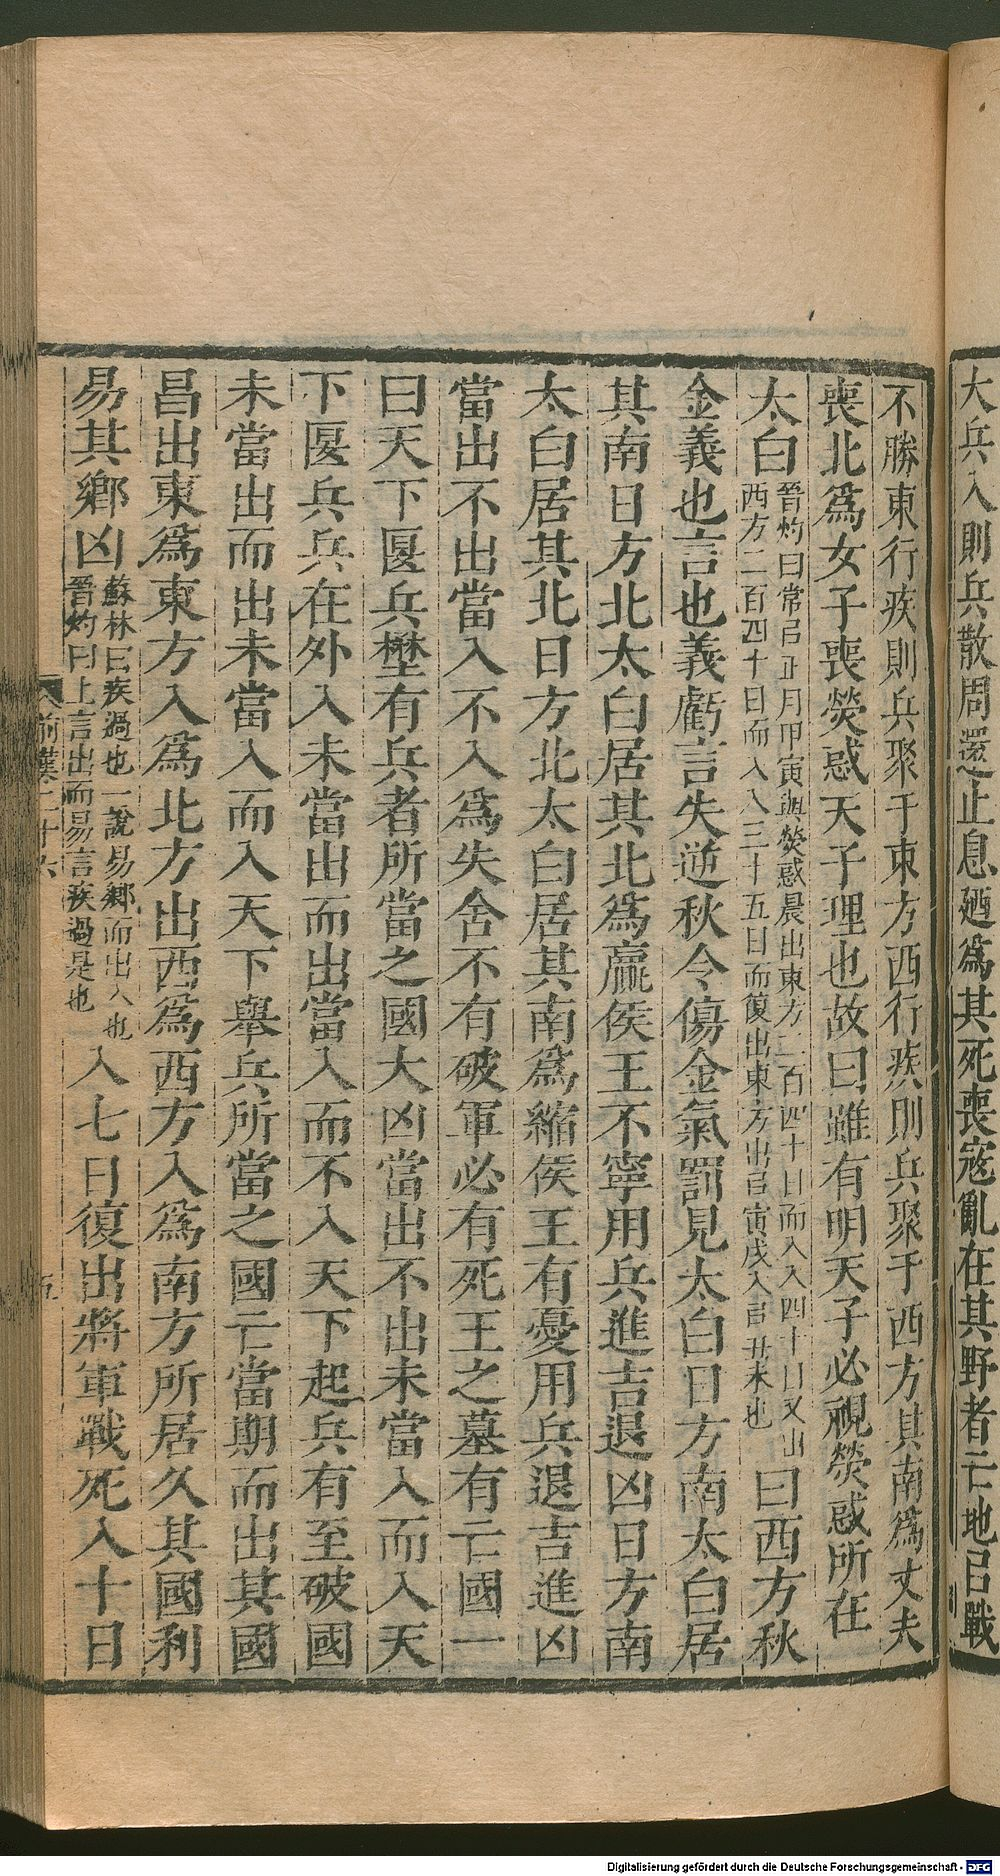 大兵入則兵散周還止息廼爲其死喪寇亂在其野者亡地㠯戰
不勝東行疾則兵聚于東方西行疾則兵聚于西方其南爲丈夫
喪北爲女子喪熒惑天子理也故曰雖有明天子必視熒惑所在
太白晉灼曰常㠯正月甲寅與熒惑晨出東方二百四十日而入入四十日又出西方二百四十日而入入三十五日而復出東方出㠯寅戌入㠯丑未也曰西方秋
金義也言也義虧言失逆秋令傷金氣罰見太白日方南太白居
其南日方北太白居其北爲贏侯王不寧用兵進吉退凶日方南
太白居其北日方北太白居其南爲縮侯王有憂用兵退吉進凶
當出不出當入不入爲失舍不有破軍必有死王之墓有亡國一
曰天下匽兵壄有兵者所當之國大凶當出不出未當入而入天
下匽兵兵在外入未當出而出當入而不入天下起兵有至破國
未當出而出未當入而入天下舉兵所當之國亡當期而出其國
昌出東爲東方入爲北方出西爲西方入爲南方所居久其國利
易其鄉凶蘇林曰疾過也一說易鄉而出入也晉灼曰上言出而易言疾過是也入七日復出將軍戰死入十日
前漢二十六
五
Digitalisierung gefördert durch die Deutsche Forschungsgemeinschaft - DFG